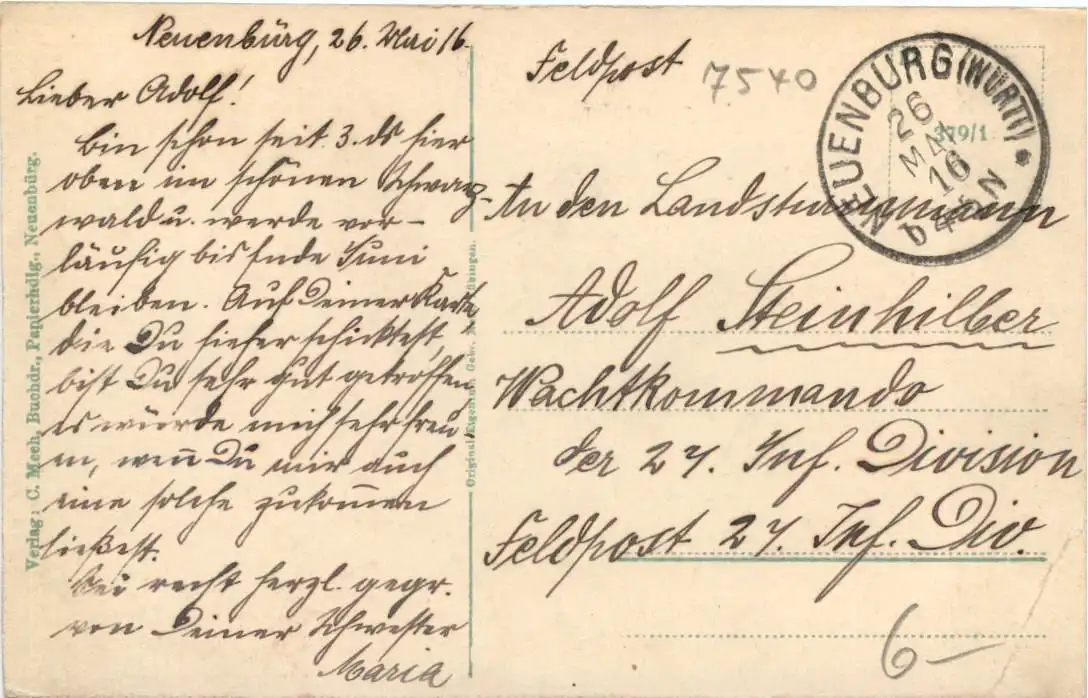 Neuenbürg, 26. Mai 16.
Lieber Adolf!
Bin schon seit 3. ds hier
oben im schönen Schwarz-
wald u. werde vor-
läufig bis Ende Juni
bleiben. Auf Deiner Karte,
die Du hieher schicktest,
bist Du sehr gut getroffen,
es würde mich sehr freu-
en, wenn Du mir auch
eine solche zukommen
ließest.
Sei recht herzl. gegr.
von Deiner Schwester
Maria
Verlag: C. Meeh, Buchdr., Papierhdlg., Neuenbürg.
Original Eigentum Gebr.
Feldpost
7540
NEUENBÜRG (WÜRTT)
26
MAI
16
N
379/1
An den Landsturmmann
Adolf Steinhilber
Wachtkommando
der 27. Inf. Division
Feldpost 27. Inf. Div.
6-